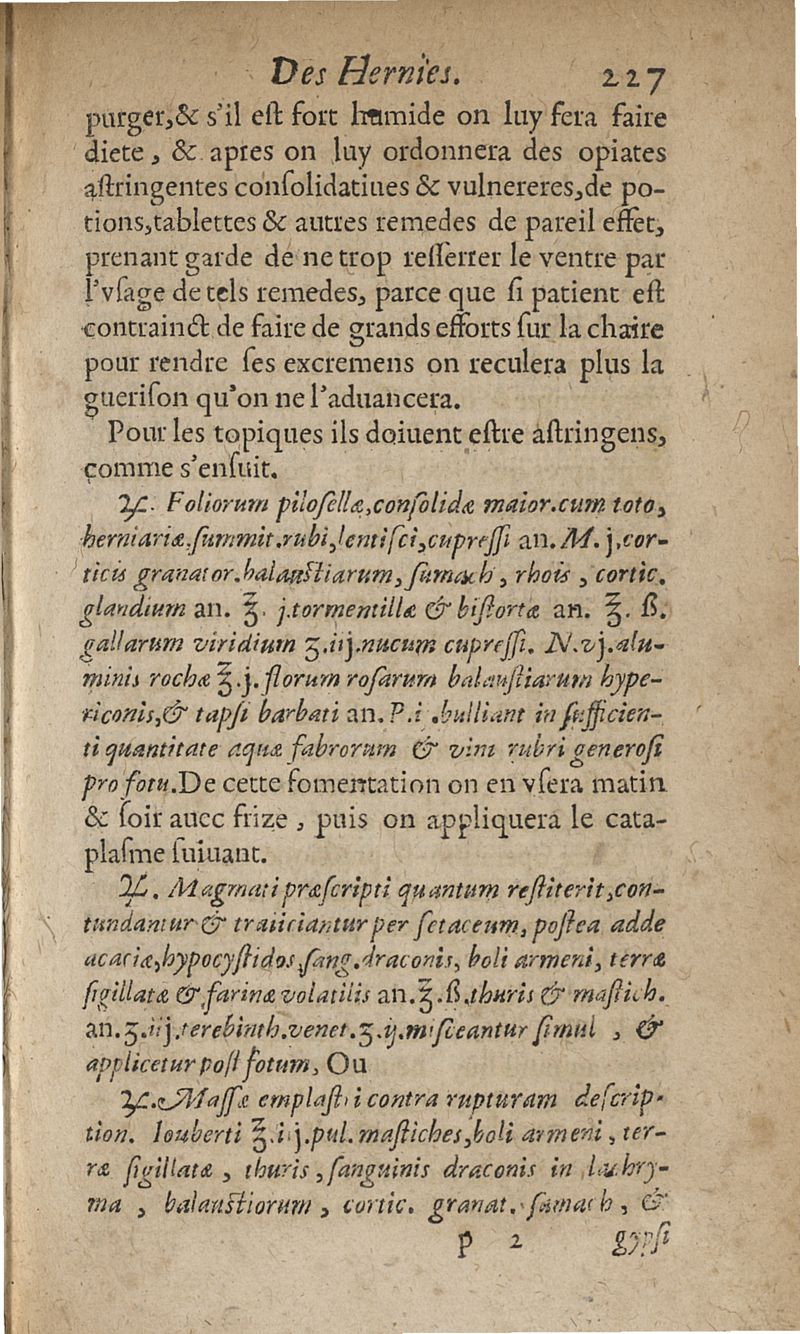 Des Hernies. 227
purger,& s'il eſt fort humide on luy fera faire
diete, & apres on luy ordonnera des opiates
aſtringentes conſolidatiues & vulnereres,de po-
tions,tablettes & autres remedes de pareil effet,
prenant garde de ne trop reſſerrer le ventre par
l'vſage de tels remedes, parce que ſi patient eſt
contrainct de faire de grands efforts ſur la chaire
pour rendre ſes excremens on reculera plus la
gueriſon qu'on ne l'aduancera.
Pour les topiques ils doiuent eſtre aſtringens,
comme s'enſuit.
℞. Foliorum piloſellæ,conſolidæ maior.cum toto,
herniariæ.ſummit.rubi,lentiſci,cupreſſi an. M. j.cor-
ticis granator.balauſtiarum, ſumach, rhois, cortic.
glandium an. ℥. j.tormentillæ & biſtortæ an. ℥. ß.
gallarum viridium ʒ.iij.nucum cupreſſi. N.vj.alu-
minis rochæ ℥.j. florum roſarum balauſtiarum hype-
riconis,& tapſi barbati an. P.i .bulliant in ſufficien-
ti quantitate aquæ fabrorum & vini rubri generoſi
pro fotu.De cette fomentation on en vſera matin
& ſoir auec frize, puis on appliquera le cata-
plaſme ſuiuant.
℞. Magmati præſcripti quantum reſtiterit,con-
tundantur & traiiciantur per ſetaceum, poſtea adde
acaciæ,hypocyſtidos,ſang.draconis, boli armeni, terræ
ſigillatæ & farinæ volatilis an.℥.ß.thuris & maſtich.
an.ʒ.iij.terebinth.venet.ʒ.ij.miſceantur ſimul, &
applicetur poſt fotum, Ou
℞.Maſſæ emplaſtri contra rupturam deſcrip-
tion. Iouberti ℥.iij.pul. maſtiches,boli armeni, ter-
ræ ſigillatæ, thuris, ſanguinis draconis in lachry-
ma, balauſtiorum, cortic. granat. ſumach, &
p 2 gypſi